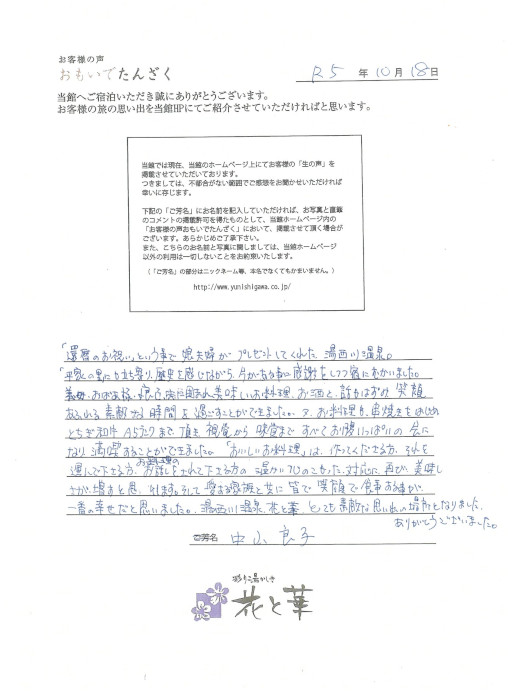 お客様の声
おもいでたんざく
R5 年 10 月 18 日
当館へご宿泊いただき誠にありがとうございます。
お客様の旅の思い出を当館HPにてご紹介させていただければと思います。
当館では現在、当館のホームページ上にてお客様の「生の声」を
掲載させていただいております。
つきましては、不都合がない範囲でご感想をお聞かせいただければ
幸いに存じます。
下記の「ご芳名」にお名前を記入していただければ、お写真と直筆
のコメントの掲載許可を得たものとして、当館ホームページ内の
「お客様の声おもいでたんざく」において、掲載させて頂く場合が
ございます。あらかじめご了承下さい。
また、こちらのお名前と写真に関しましては、当館ホームページ
以外の利用は一切しないことをお約束いたします。
(「ご芳名」の部分はニックネーム等、本名でなくてもかまいません。)
http://www.yunishigawa.co.jp/
「還暦のお祝い」という事で娘夫婦がプレゼントしてくれた湯西川温泉。
平家の里にも立ち寄り、歴史を感じながら、今がある事に感謝をしつつ宿に向かいました。
美味しいお料理、お酒と、話もはずみ笑顔
あふれる素敵な時間を過ごすことができました。又、お料理も串焼きをはじめ
とちぎ和牛A5ランクまで、頂き視覚から味覚まですべてお腹いっぱいの会に
なり満喫することができました。「おいしいお料理」は、作ってくださる方、それを
運んで下さる方、お料理のお話をされて下さる方の温かい心のこもった対応に再び美味し
さが増すと思います。そして愛する家族と共に皆で笑顔で食事する事が
一番の幸せだと思いました。湯西川温泉、花と華、とても素敵な思い出の場所となりました。
ありがとうございました。
ご芳名 中山 良子
彩り湯かしき
花と華